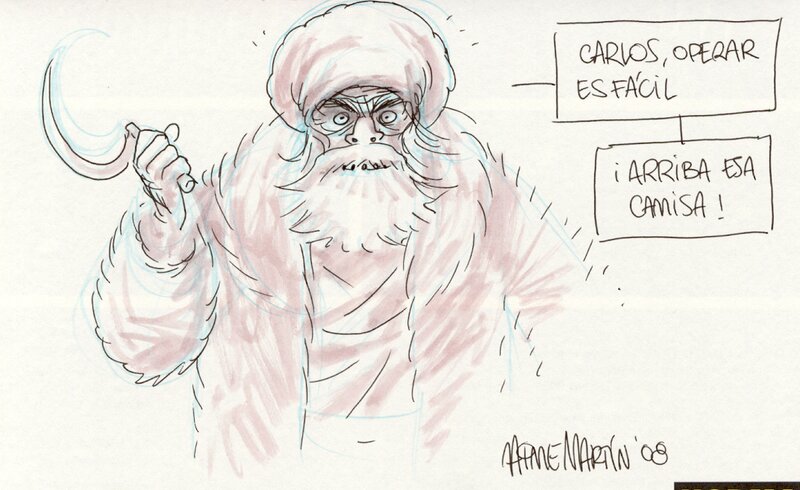 CARLOS, OPERAR
ES FÁCIL
¡ARRIBA ESA
CAMISA!
JAIME MARTÍN '08